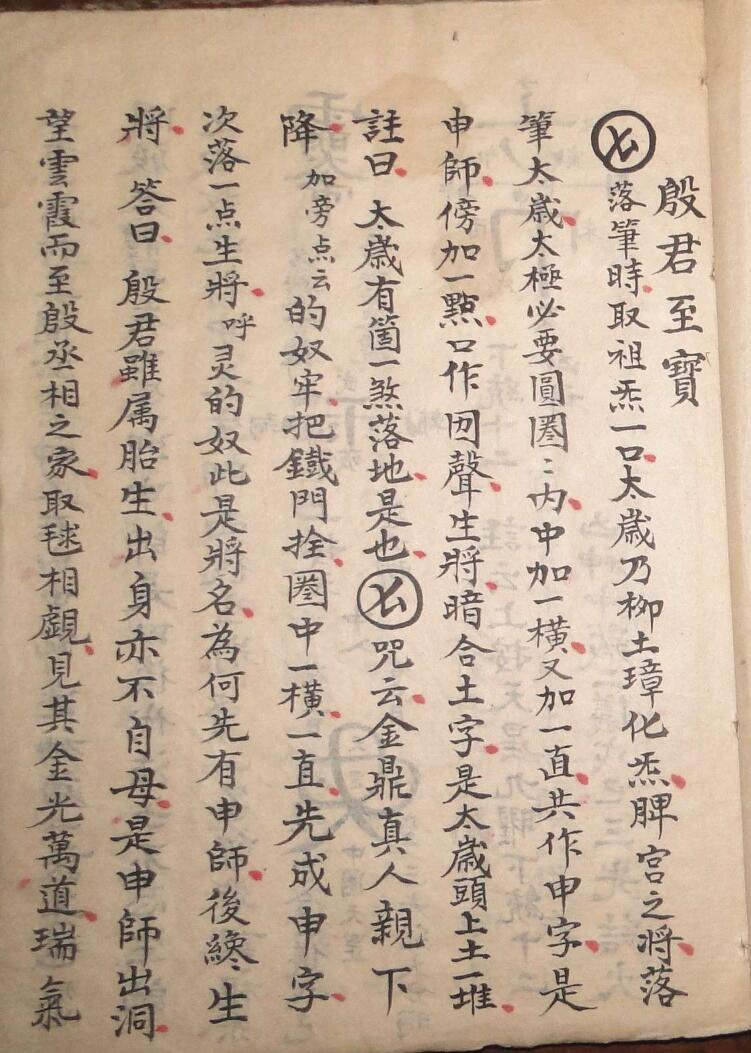 殷君至寶
落筆時取祖炁一口太歲乃柳土璋化炁脾宮之將落
筆太歲太極必要圓圈〻内中加一橫又加一直共作申字是
申師傍加一點口作囡聲生將暗合土字是太歲頭上土一堆
註曰太歲有箇一煞落地是也 咒云金鼎真人親下
降加旁点云的奴牢把鐵門拴圏中一橫一直先成申字
次落一点生將呼灵的奴此是將名為何先有申師後纔生
將答曰殷君雖属胎生出身亦不自母是申師出洞
望雲霞而至殷丞相之家取毬相觑見其金光萬道瑞氣